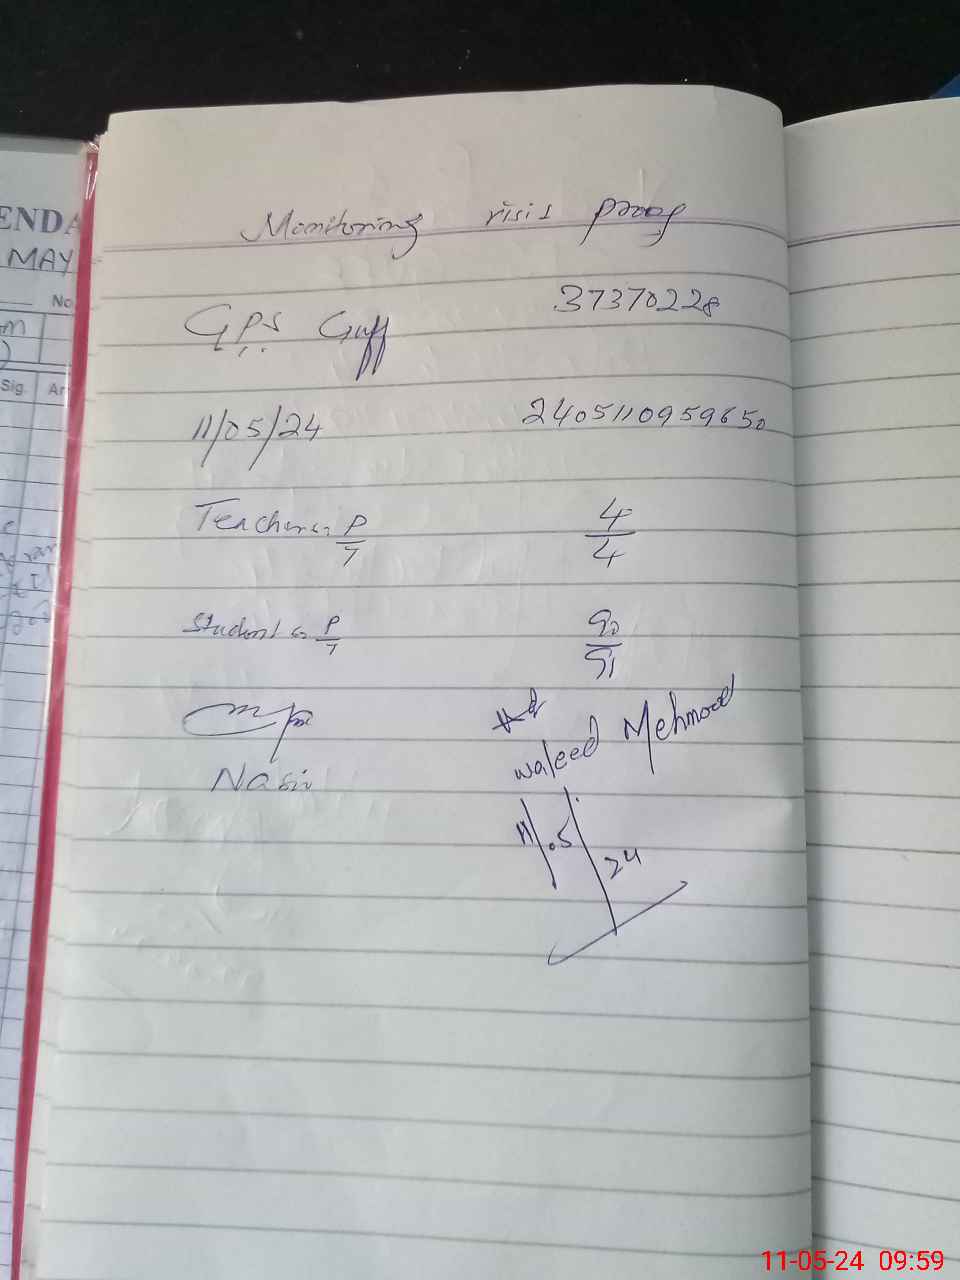 ENDA
MAY
No
m
Sig. Am
Monitoring visit proof
GPS Guff 37370228
11/05/24 2405110959650
Teachers P/T 4/4
Students P/T 90/91
Nasir
Waleed Mehmood
11/05/24
11-05-24 09:59